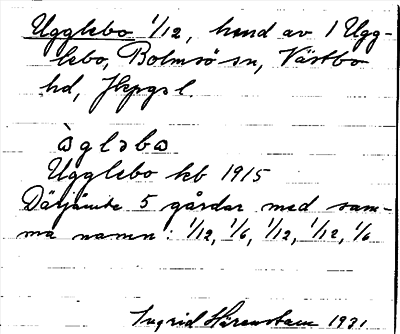 Ugglebo 1/12, hmd av 1 Ugg-
lebo, Bolmsö sn, Västbo
hd, Jkpgs l.
ùgləbo
Ugglebo kb 1915
Därjämte 5 gårdar med sam-
ma namn: 1/12, 1/6, 1/12, 1/12, 1/6
Ingrid Härenstam 1931